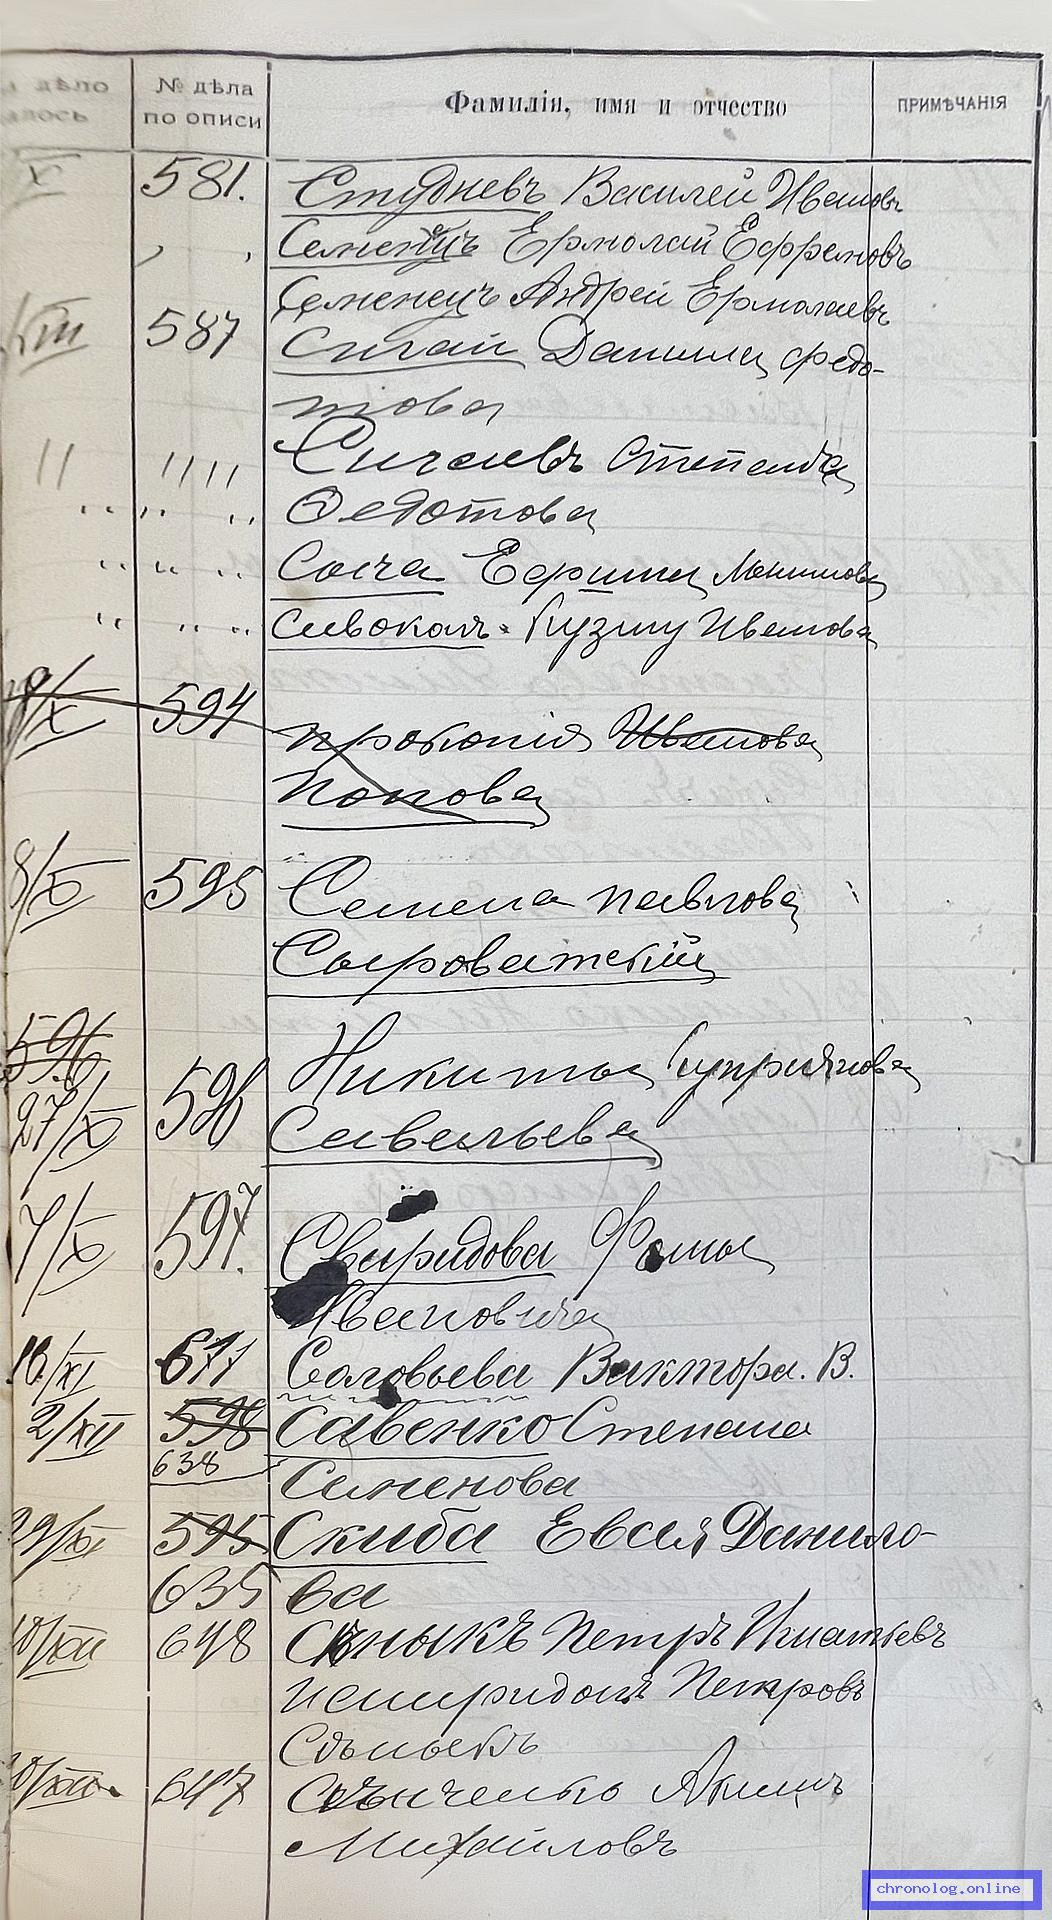 дѣло
№ дѣла
по описи
Фамилія, имя и отчество
ПРИМѢЧАНІЯ
X 581. Студневъ Василей Ивановъ
Семенецъ Ермолай Ефремовъ
Семенецъ Андрей Ермолаевъ
587 Сигай Данила Федо-
това
" "" Сигаевъ Степана
Федотова
Сыча Ефима
Сивоконъ Кузму Иванова
594 Прокопія Иванова
Попова
8/X 595 Семена Павлова
Сыроватскій
596 Никиты Куприянова
27/X 596 Савельева
7/X 597. Свиридова Фомы
Ивановича
10./XI 611 Соловьева Виктора. В.
2/XII 598 Савенко Степана
638 Семенова
29/XI 595 Скиба Евсея Данило-
635 ва
10/XII 648 Петръ Игнатьевъ
Петровъ
10/XII 647 Акимъ
Михайловъ
chronolog.online